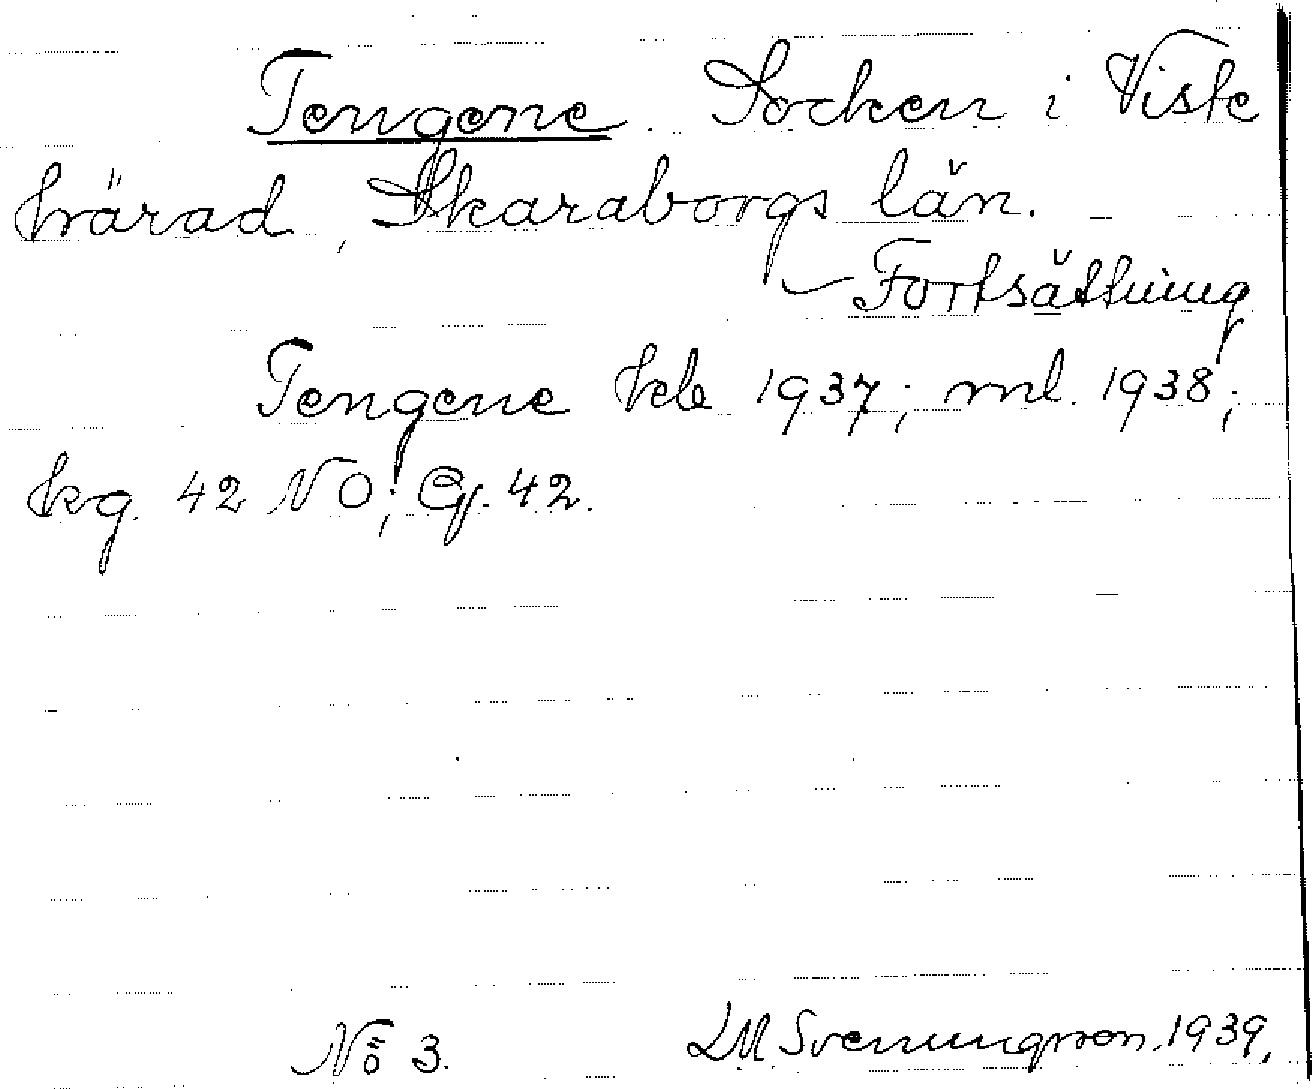 Tengene. Socken i Viste
härad, Skaraborgs län. -
- Fortsättning
Tengene hcb 1937; ml. 1938;
kg. 42 NO; Gf. 42.
No 3. LM Svenungsson. 1939.